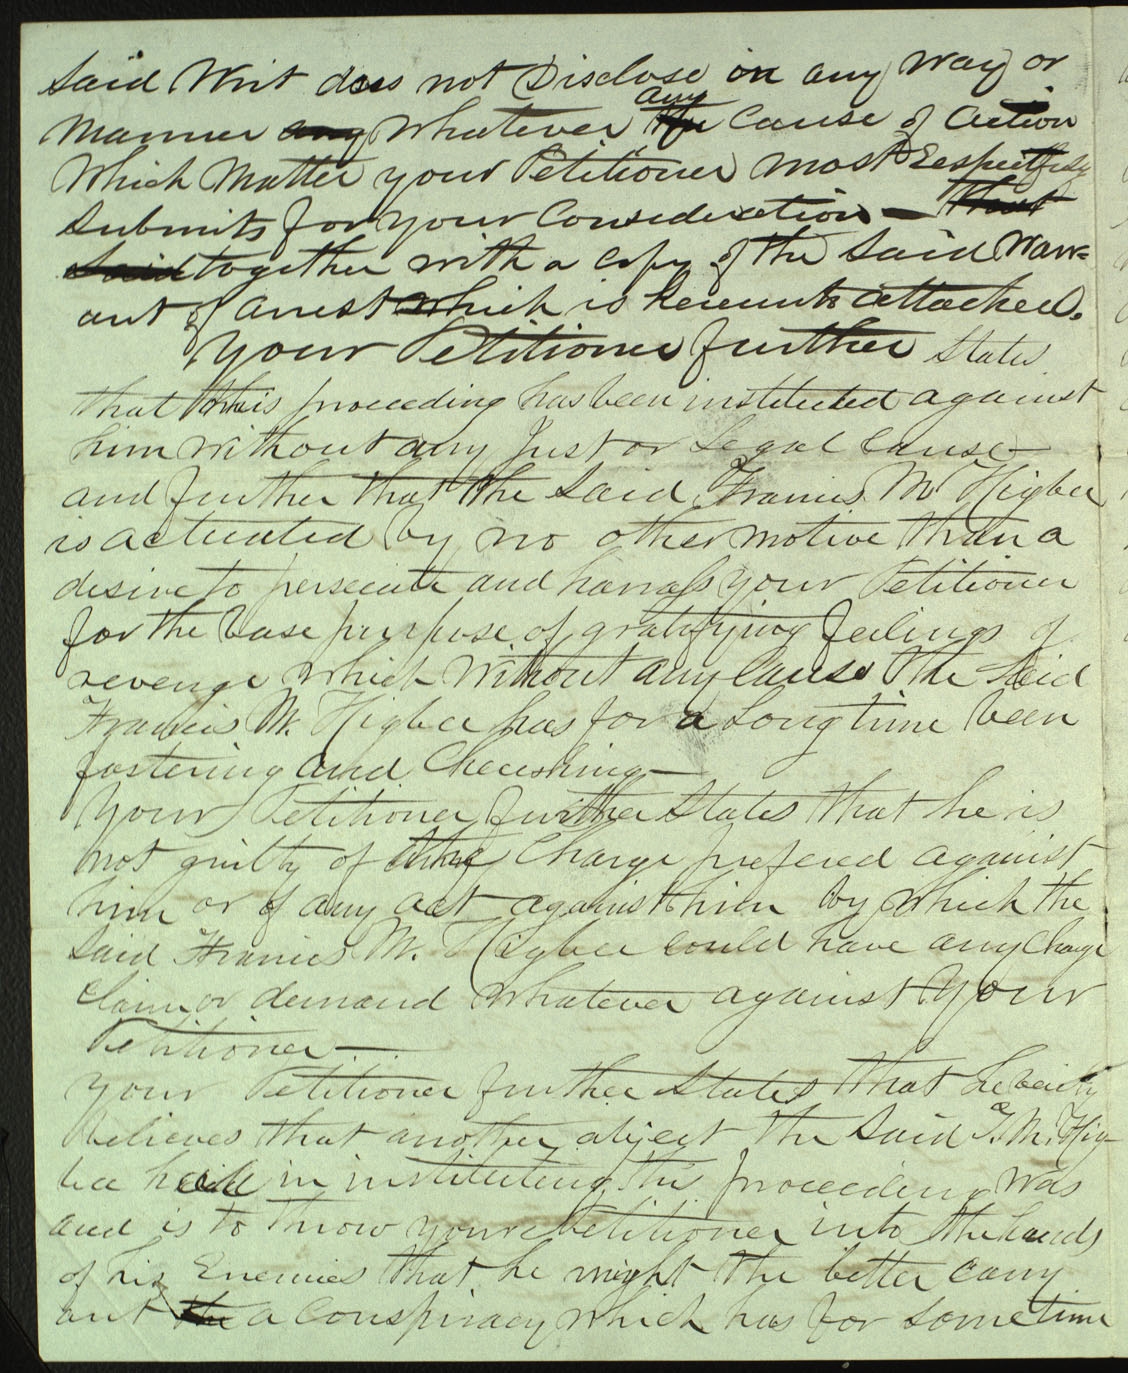 Said Writ does not Disclose in any way or
Manner any Whatever the any Cause of Action
Which Matter your Petitioner most Respectfuly
Submits for your Consideration — that
Said together with a copy of the Said Warr=
ant of arrest which is hereunto attached.
Your Petitioner further States
that this proceeding has been instituted against
him without any Just or Legal Cause—
and further that the Said Francis M Higbee
is actuated by no other motive than a
desire to persecute and harrass your Petitioner
for the base purpose of gratifying feelings of
revenge which without any cause the Said
Francis M. Higbee has for a Long time been
fostering and Cherishing—
Your Petitioner further States that he is
not guilty of the Charge prefered against
him or of any act against him by which the
Said Francis M. Higbee could have any Charge
claim or demand whatever against your
Petitioner—
Your Petitioner further States that he verily
believes that another object the Said F. M. Hig-
bee had in instituting this proceeding was
and is to throw your Petitioner into the hands
of his Enemies that he might the better carry
out the a conspiracy which has for sometime